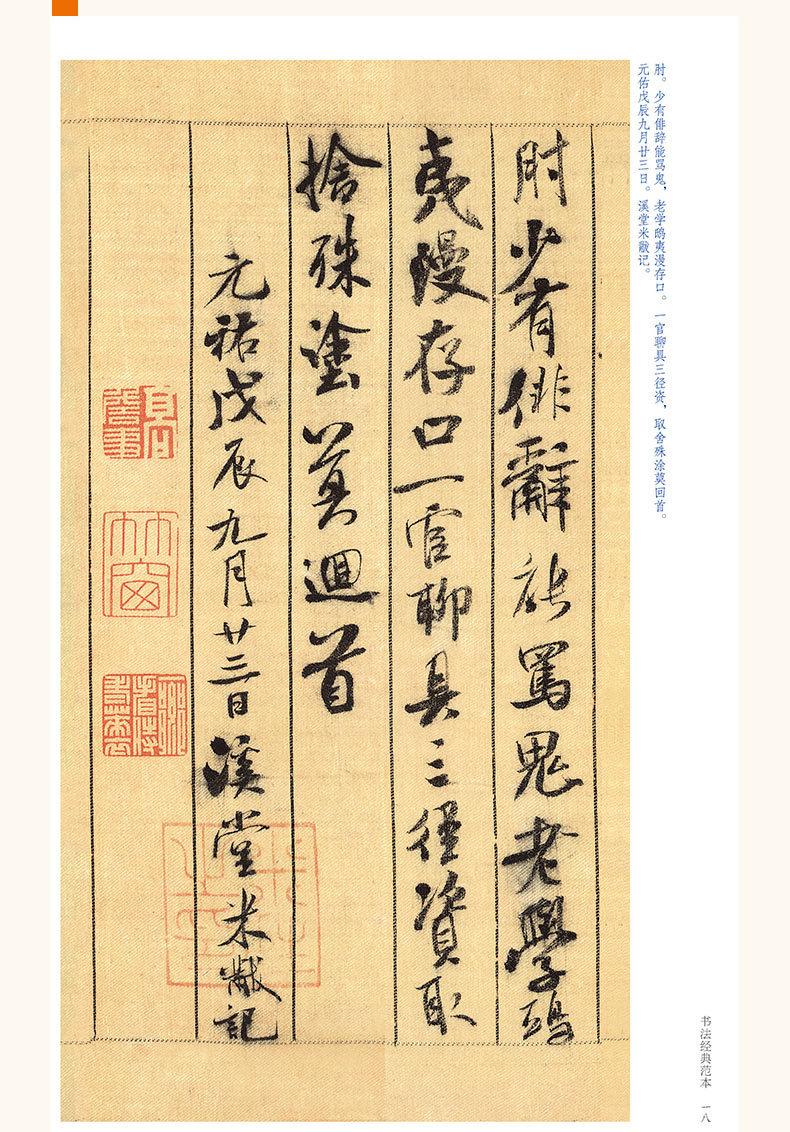 肘。少有俳辞能骂鬼，老学鸱夷漫存口。一官聊具三径资，取舍殊涂莫回首。
元佑戊辰九月廿三日。溪堂米黻记。
肘少有俳辭能罵鬼老學鴟
夷漫存口一官聊具三徑資取
捨殊塗莫迴首
元祐戊辰九月廿三日溪堂米黻記
竹窗
书法经典范本 一八